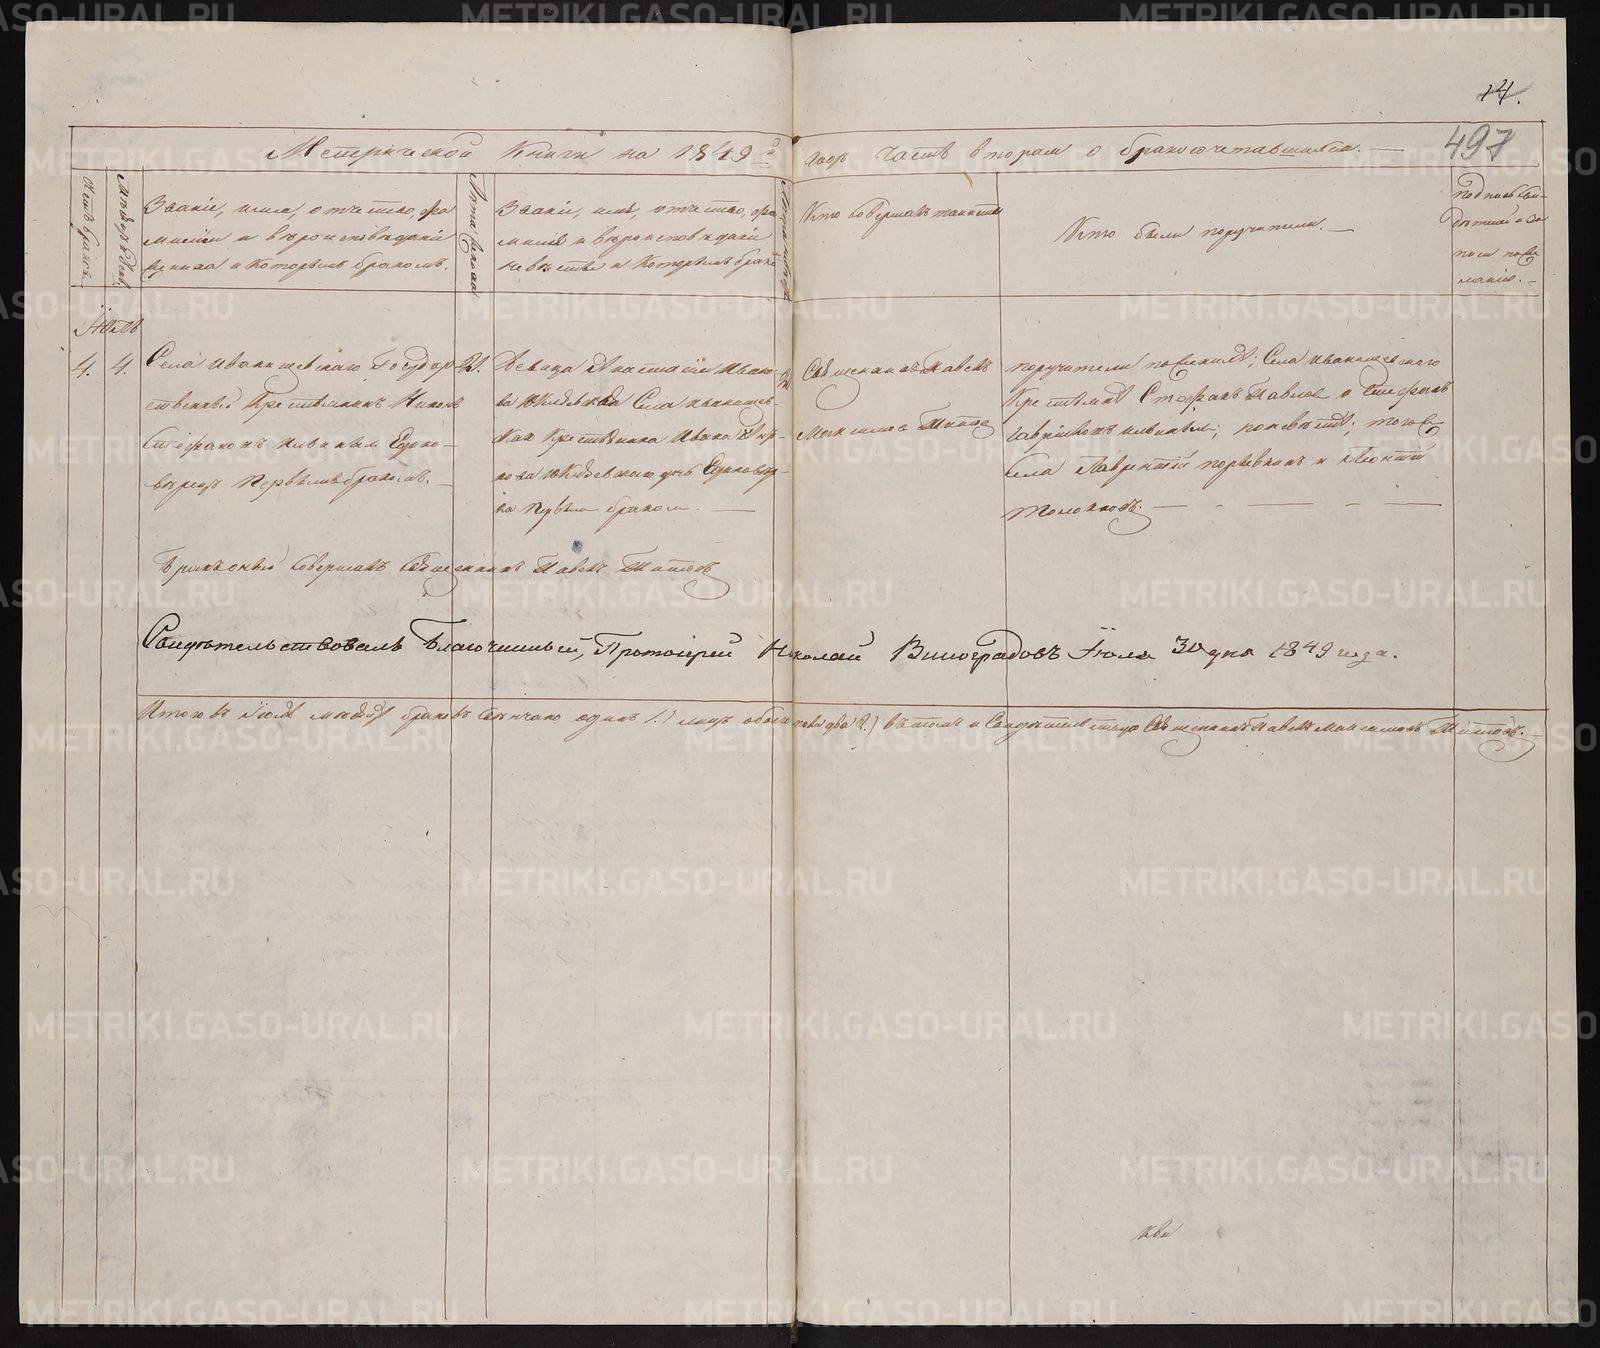 14.
497
Метрической Книги на 1849й годъ часть вторая о бракосочетавшихся.
Счетъ браковъ.
Мѣсяцъ и день
Званіе, имя, отчество, фа
милія и вѣроисповѣданіе
жениха и которымъ бракомъ.
Лѣта жениха
Званіе, имя, отчество, фа
милія и вѣроисповѣданіе
невѣсты и которымъ брако
Лѣта невѣсты
Кто совершалъ таинство
Кто были поручители.
Подпись сви-
дѣтелей о за
писи по же
ланію.
Іюль
4. 4.
Села Иванищевскаго Государ
ственный Крестьянинъ Никонъ
Стефановъ
Едино-
вѣрецъ Первымъ бракомъ.
21.
Девица Анастасія Ивано-
ва
Села Иванищев-
Крестьянина Ивана
дочь Единовѣр-
ка первымъ бракомъ.
Священникъ Павелъ
Максимовъ Титовъ
поручители по женихѣ; Села Иванищевскаго
Крестьяне Стефанъ Павловъ и Стефанъ
по невѣсте; того же
села Лаврентій и Леонтій
Толокновъ.
Бракъ оный совершалъ Священникъ Павелъ Титовъ
Свидѣтельствовалъ Благочинный, Протоіерей Николай Виноградовъ Іюля 30 дня 1849 года.
Итого въ Іюлѣ месяцѣ браковъ Венчано одинъ 1.) лицъ обоего пола два 2.) въ томъ и Свидѣтельствую Священникъ Павелъ Максимовъ Титовъ.
METRIKI.GASO-URAL.RU